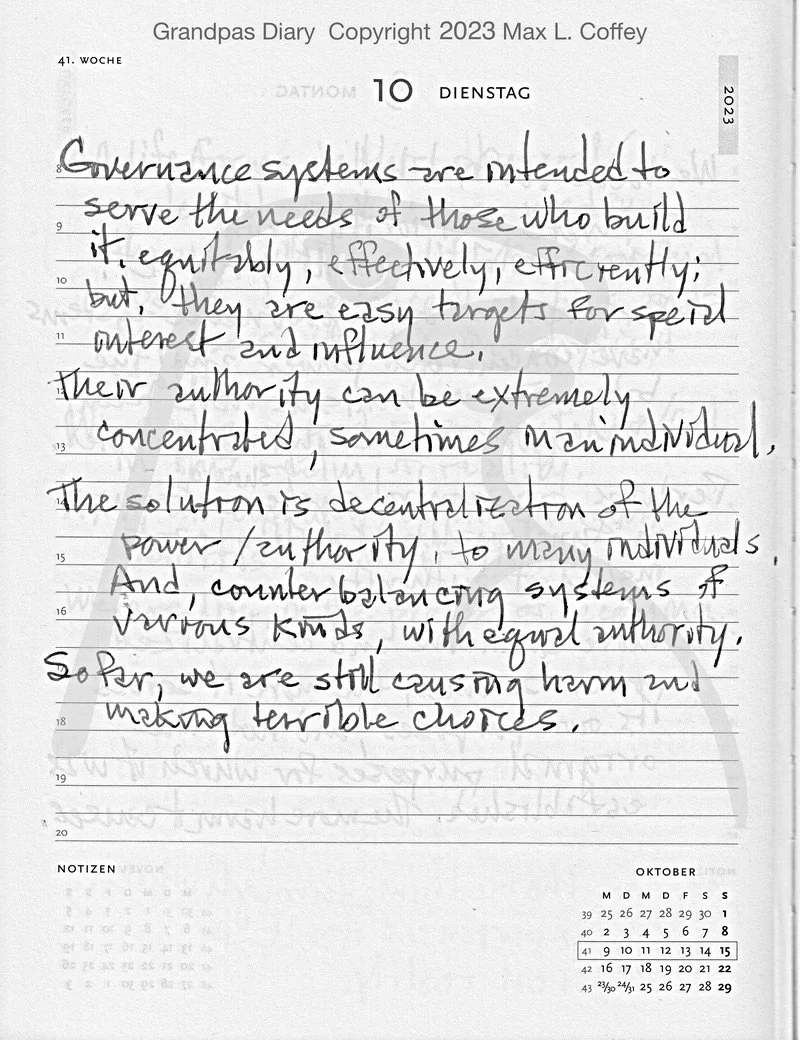 Grandpas Diary Copyright 2023 Max L. Coffey
41. WOCHE
10 DIENSTAG
2023
8 Governance systems are intended to
serve the needs of those who build
9
it, equitably, effectively, efficiently;
10
but, they are easy targets for speial
11
interest and influence.
12 Their authority can be extremely
concentrated, sometimes in an individual.
13
14 The solution is decentralization of the
power / authority, to many individuals.
15
And, counter balancing systems of
16
various kinds, with equal authority.
So far, we are still causing harm and
making terrible choices.
18
19
20
NOTIZEN
OKTOBER
M D M D F S S
39 25 26 27 28 29 30 1
40 2 3 4 5 6 7 8
41 9 10 11 12 13 14 15
42 16 17 18 19 20 21 22
43 23/30 24/31 25 26 27 28 29